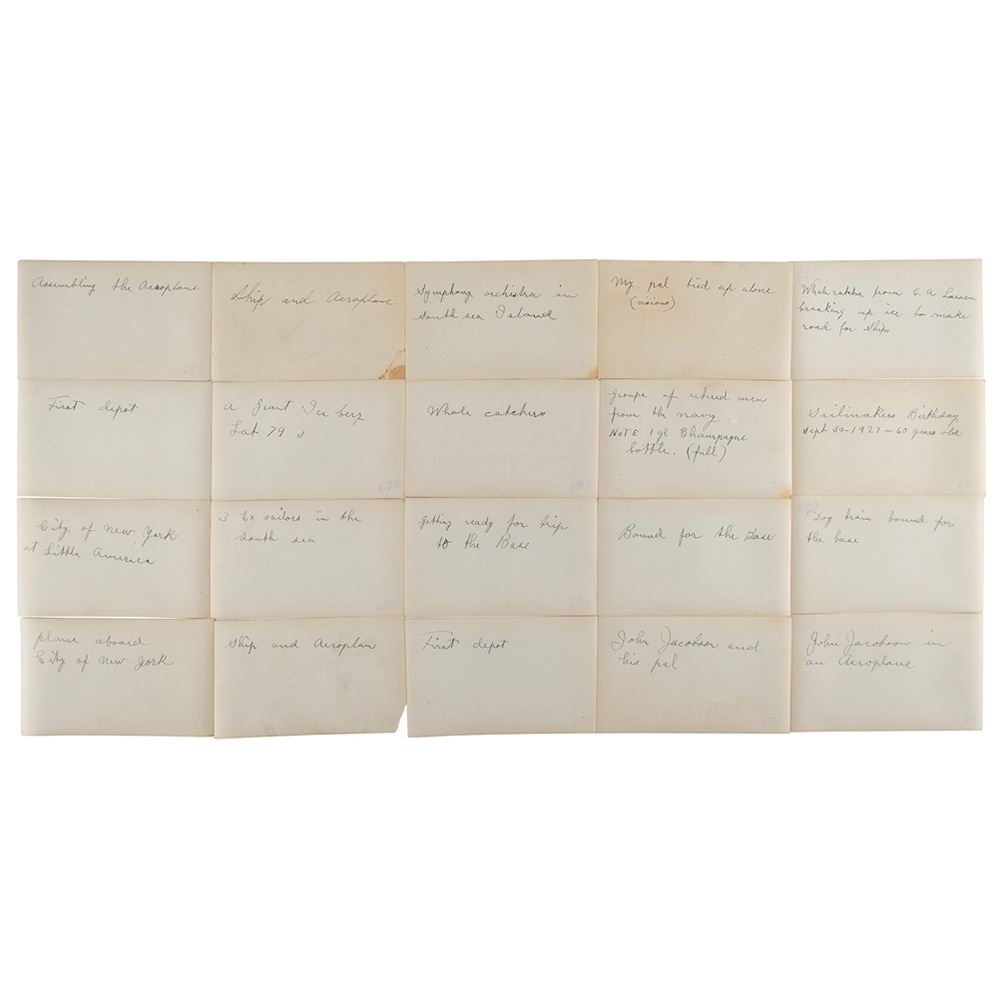 Assembling the Aeroplane
Ship and Aeroplane
Symphony orchistra in
South sea Island
My pal tied up alone
(visions)
Whale catcher from C. A. Larsen
breaking up ice to make
road for Ships
First depot
A Giant Ice berg
Lat 79 s
Whale catchers
groupe of retired men
from the navy
NOTE 1 gl Champagne
bottle. (full)
Sailmakers Birthday
Sept 30-1927-60 years old
City of New York
at Little America
3 Ex sailors in the
South sea
Getting ready for trip
to the Base
Bound for the Base
Dog train bound for
the base
plane aboard
City of New York
Ship and Aeroplan
First depot
John Jacobson and
his pal
John Jacobson in
an Aeroplane